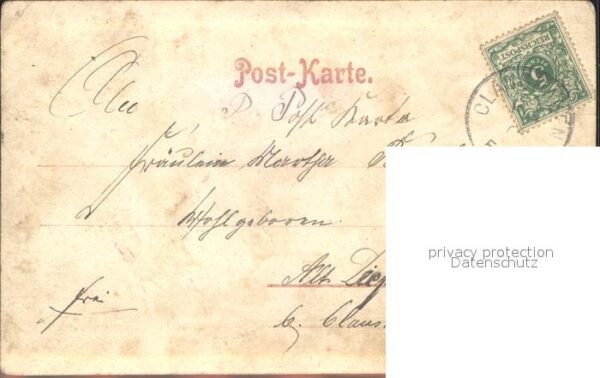 Post-Karte.
REICHSPOST
5
CLA
EN
An
P Post Karte
Fräulein Martha
Wohlgeboren.
Alt
b. Claus
frei
privacy protection
Datenschutz